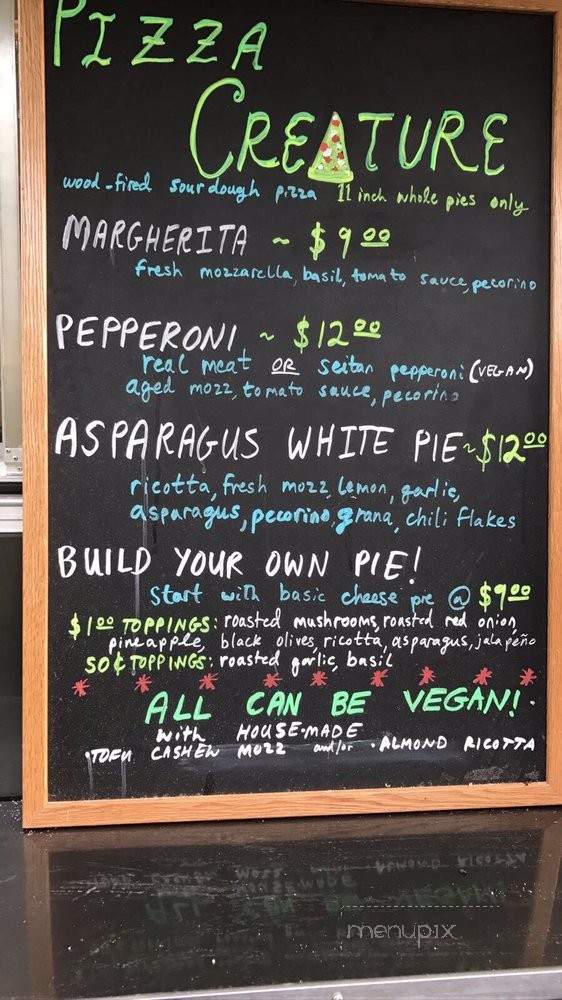 PIZZA
CREATURE
wood-fired sourdough pizza 11 inch whole pies only
MARGHERITA ~ $9.00
fresh mozzarella, basil, tomato sauce, pecorino
PEPPERONI ~ $12.00
real meat OR seitan pepperoni (VEGAN)
aged mozz, tomato sauce, pecorino
ASPARAGUS WHITE PIE ~ $12.00
ricotta, fresh mozz, lemon, garlic,
asparagus, pecorino, grana, chili flakes
BUILD YOUR OWN PIE!
Start with basic cheese pie @ $9.00
$1.00 TOPPINGS: roasted mushrooms, roasted red onion,
pineapple, black olives, ricotta, asparagus, jalapeño
50¢ TOPPINGS: roasted garlic, basil
* * * * * * * * *
ALL CAN BE VEGAN!
with HOUSE-MADE
• TOFU CASHEW MOZZ and/or • ALMOND RICOTTA
menupix